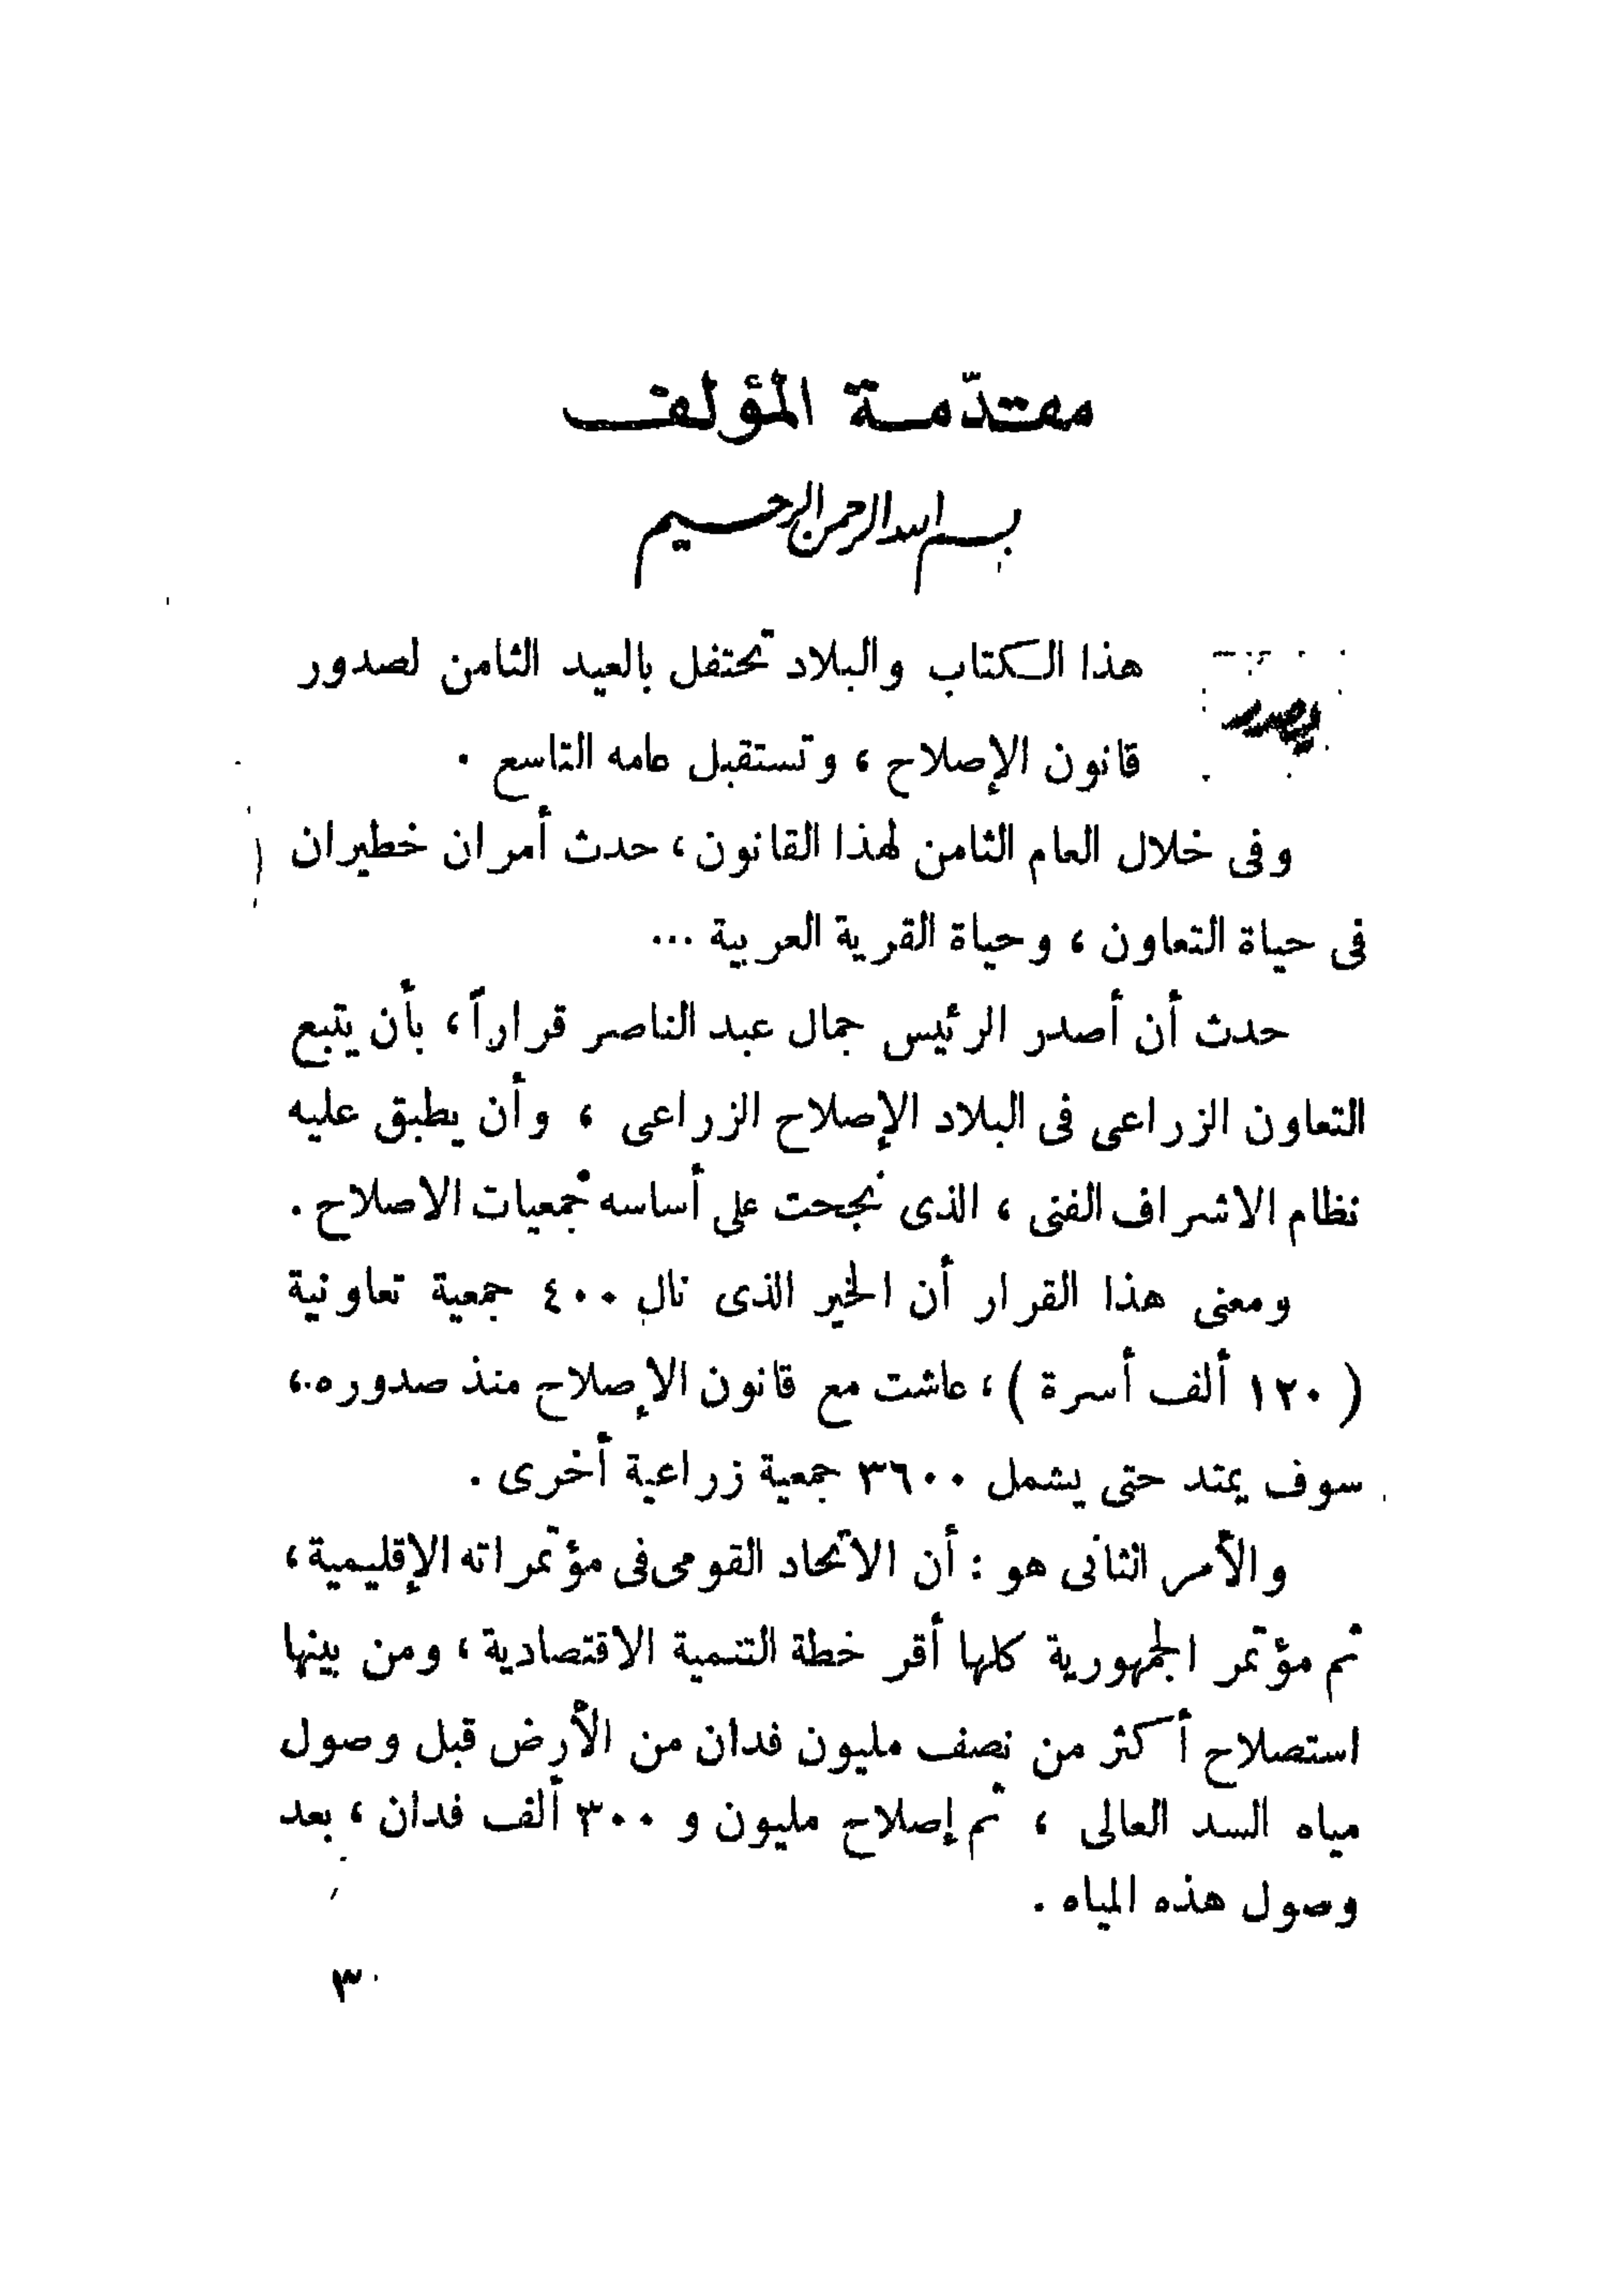 مقدّمة المؤلف
بسم الله الرحمن الرحيم
يصدر هذا الكتاب والبلاد تحتفل بالعيد الثامن لصدور
قانون الإصلاح ، وتستقبل عامه التاسع .
وفى خلال العام الثامن لهذا القانون ، حدث أمران خطيران
فى حياة التعاون ، وحياة القرية العربية ...
حدث أن أصدر الرئيس جمال عبد الناصر قراراً ، بأن يتبع
التعاون الزراعى فى البلاد الإصلاح الزراعى ، وأن يطبق عليه
نظام الاشراف الفنى ، الذى نجحت على أساسه جمعيات الاصلاح .
ومعنى هذا القرار أن الخير الذى نال ٤٠٠ جمعية تعاونية
( ١٢٠ ألف أسرة ) ، عاشت مع قانون الإصلاح منذ صدوره ،
سوف يمتد حتى يشمل ٣٦٠٠ جمعية زراعية أخرى .
والأمر الثانى هو : أن الاتحاد القومى فى مؤتمراته الإقليمية ،
ثم مؤتمر الجمهورية كلها أقر خطة التنمية الاقتصادية ، ومن بينها
استصلاح أكثر من نصف مليون فدان من الأرض قبل وصول
مياه السد العالى ، ثم إصلاح مليون و ٣٠٠ ألف فدان ، بعد
وصول هذه المياه .
٣